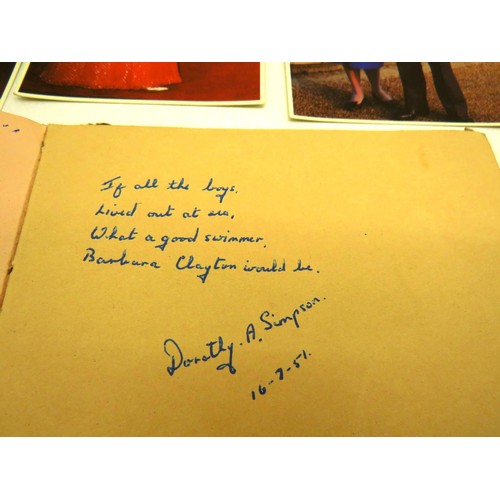 If all the boys,
Lived out at sea,
What a good swimmer,
Barbara Clayton would be.
Dorothy. A. Simpson.
16-7-51.